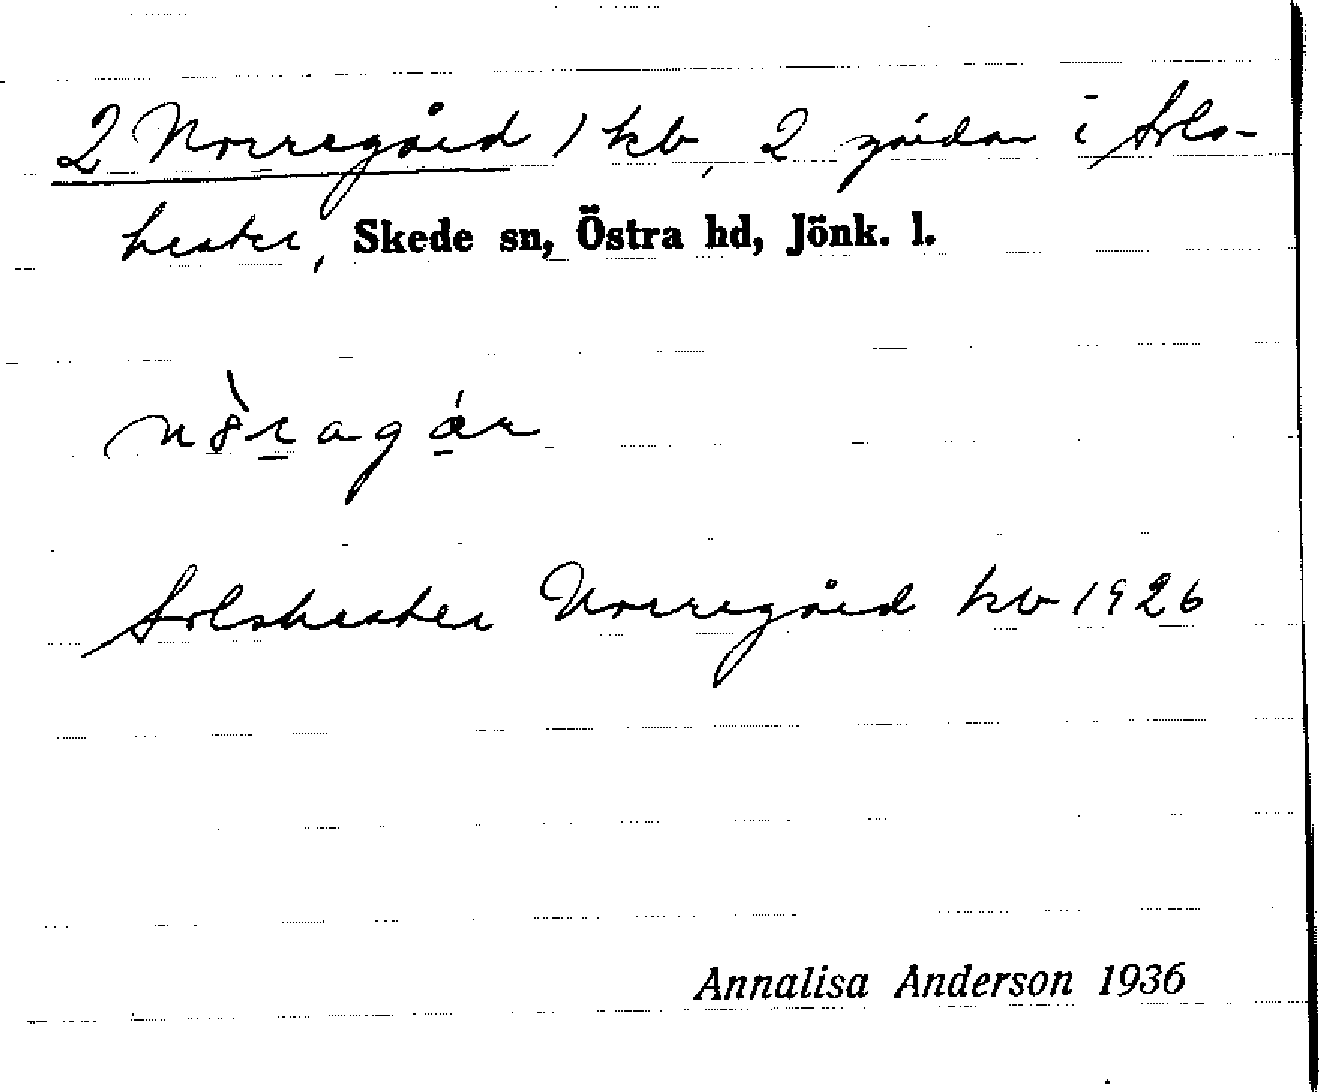 2 Norregård 1 kb, 2 gårdar i Sols-
hester, Skede sn, Östra hd, Jönk. l.
Solshester Norregård kb 1926
Annalisa Anderson 1936